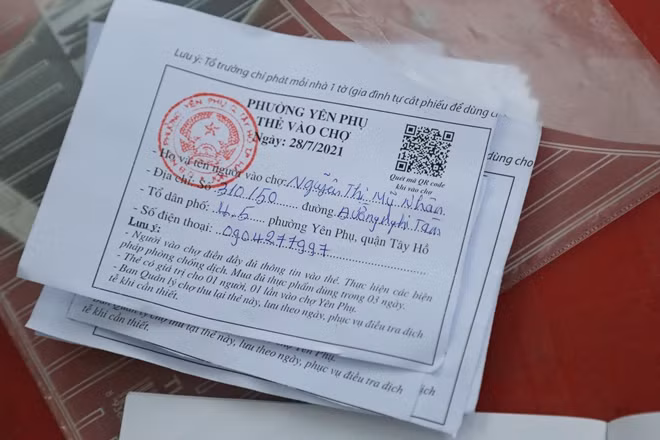 Lưu ý: Tổ trưởng chỉ phát mỗi nhà 1 tờ (gia đình tự cắt phiếu để dùng
PHƯỜNG YÊN PHỤ
THẺ VÀO CHỢ
Ngày: 28/7/2021
Quét mã QR code
khi vào chợ
- Họ và tên người vào chợ: Nguyễn Thị Mỹ Nhân
- Địa chỉ: Số 310/50 đường An Dương Nghi Tàm
- Tổ dân phố: 4.5 phường Yên Phụ, quận Tây Hồ
- Số điện thoại: 0904277997
Lưu ý:
- Người vào chợ điền đầy đủ thông tin vào thẻ. Thực hiện các biện
pháp phòng chống dịch. Mua đủ thực phẩm dùng trong 03 ngày.
- Thẻ có giá trị cho 01 người, 01 lần vào chợ Yên Phụ.
- Ban Quản lý chợ thu lại thẻ này, lưu theo ngày, phục vụ điều tra dịch
tễ khi cần thiết.
chợ Yên Phụ.
Ban Quản lý chợ thu lại thẻ này, lưu theo ngày, phục vụ điều tra dịch
tễ khi cần thiết.